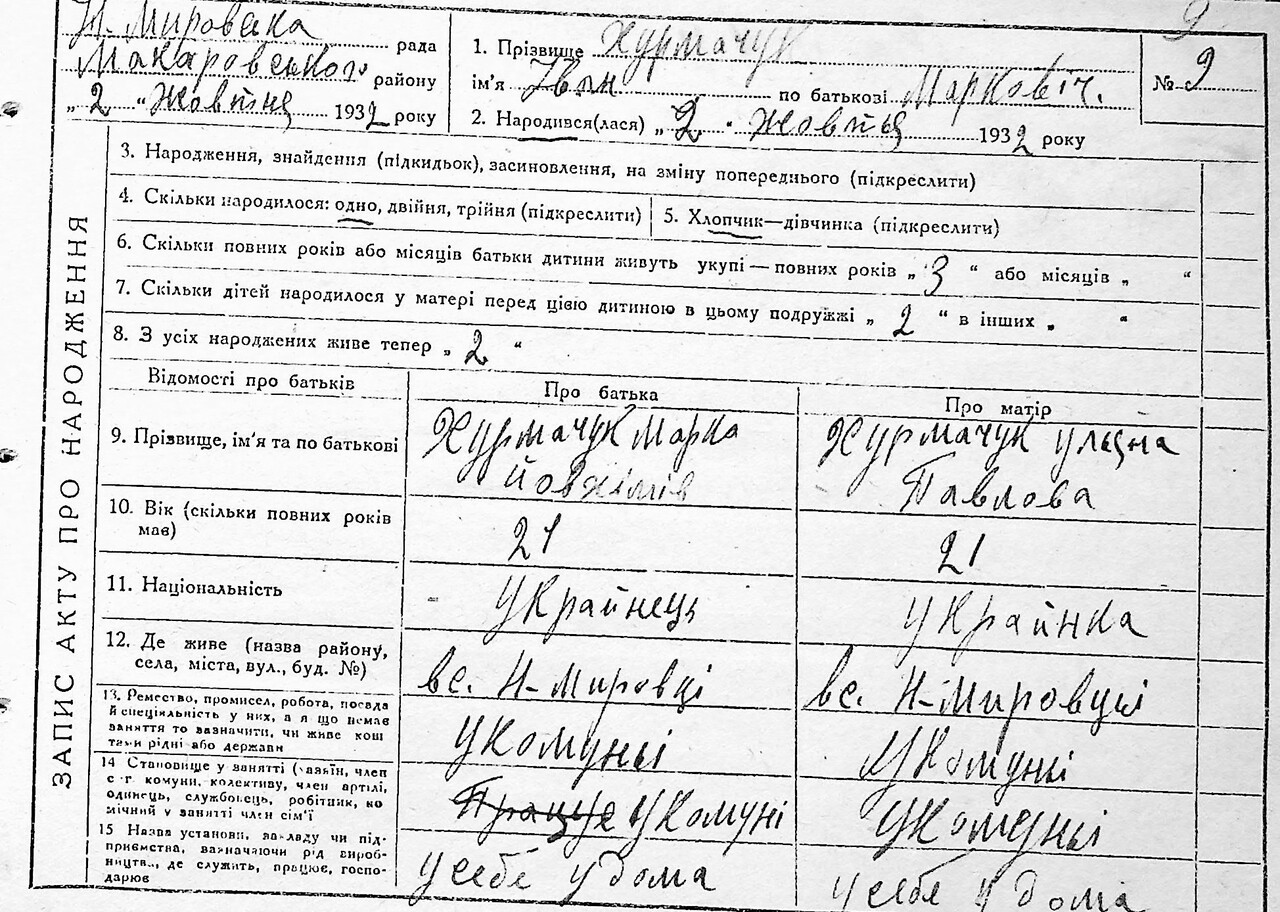 Н. Мировська рада
Макаровського району
„ 2 “ Жовтня 1932 року
1. Прізвище Хурмачук
ім'я Іван по батькові Марковіч.
2. Народився(лася) „ 2 “ Жовтня 1932 року
9
№ 9
ЗАПИС АКТУ ПРО НАРОДЖЕННЯ
3. Народження, знайдення (підкидьок), засиновлення, на зміну попереднього (підкреслити)
4. Скільки народилося: одно, двійня, трійня (підкреслити)
5. Хлопчик—дівчинка (підкреслити)
6. Скільки повних років або місяців батьки дитини живуть укупі — повних років „ 3 “ або місяців „ “
7. Скільки дітей народилося у матері перед цією дитиною в цьому подружжі „ 2 “ в інших „ “
8. З усіх народжених живе тепер „ 2 “
Відомості про батьків
Про батька
Про матір
9. Прізвище, ім'я та по батькові
Хурмачук Марко
Йовхімів
Хурмачук Уляна
Павлова
10. Вік (скільки повних років
мав)
21
21
11. Національність
Українець
Українка
12. Де живе (назва району,
села, міста, вул., буд. №)
вс. Н-Мировці
вс. Н-Мировцы
13. Ремество, промисел, робота, посада
й спеціяльність у них, а я що немає
заняття то вазначити, чи живе кош
тами рідні або держави
У Комуны
У Комуны
14 Становище у занятті (хазяїн, член
с г. комуни, колективу, член артілі,
одинець, службовець, робітник, по
мічний у занятті член сім'ї
Працує у Комуні
У Комуны
15 Назва установи, закладу чи під-
приємства, вазначаючи рід вироб-
ництва, де служить, працює, госпо-
дарює
у себе у дома
у себе у дома